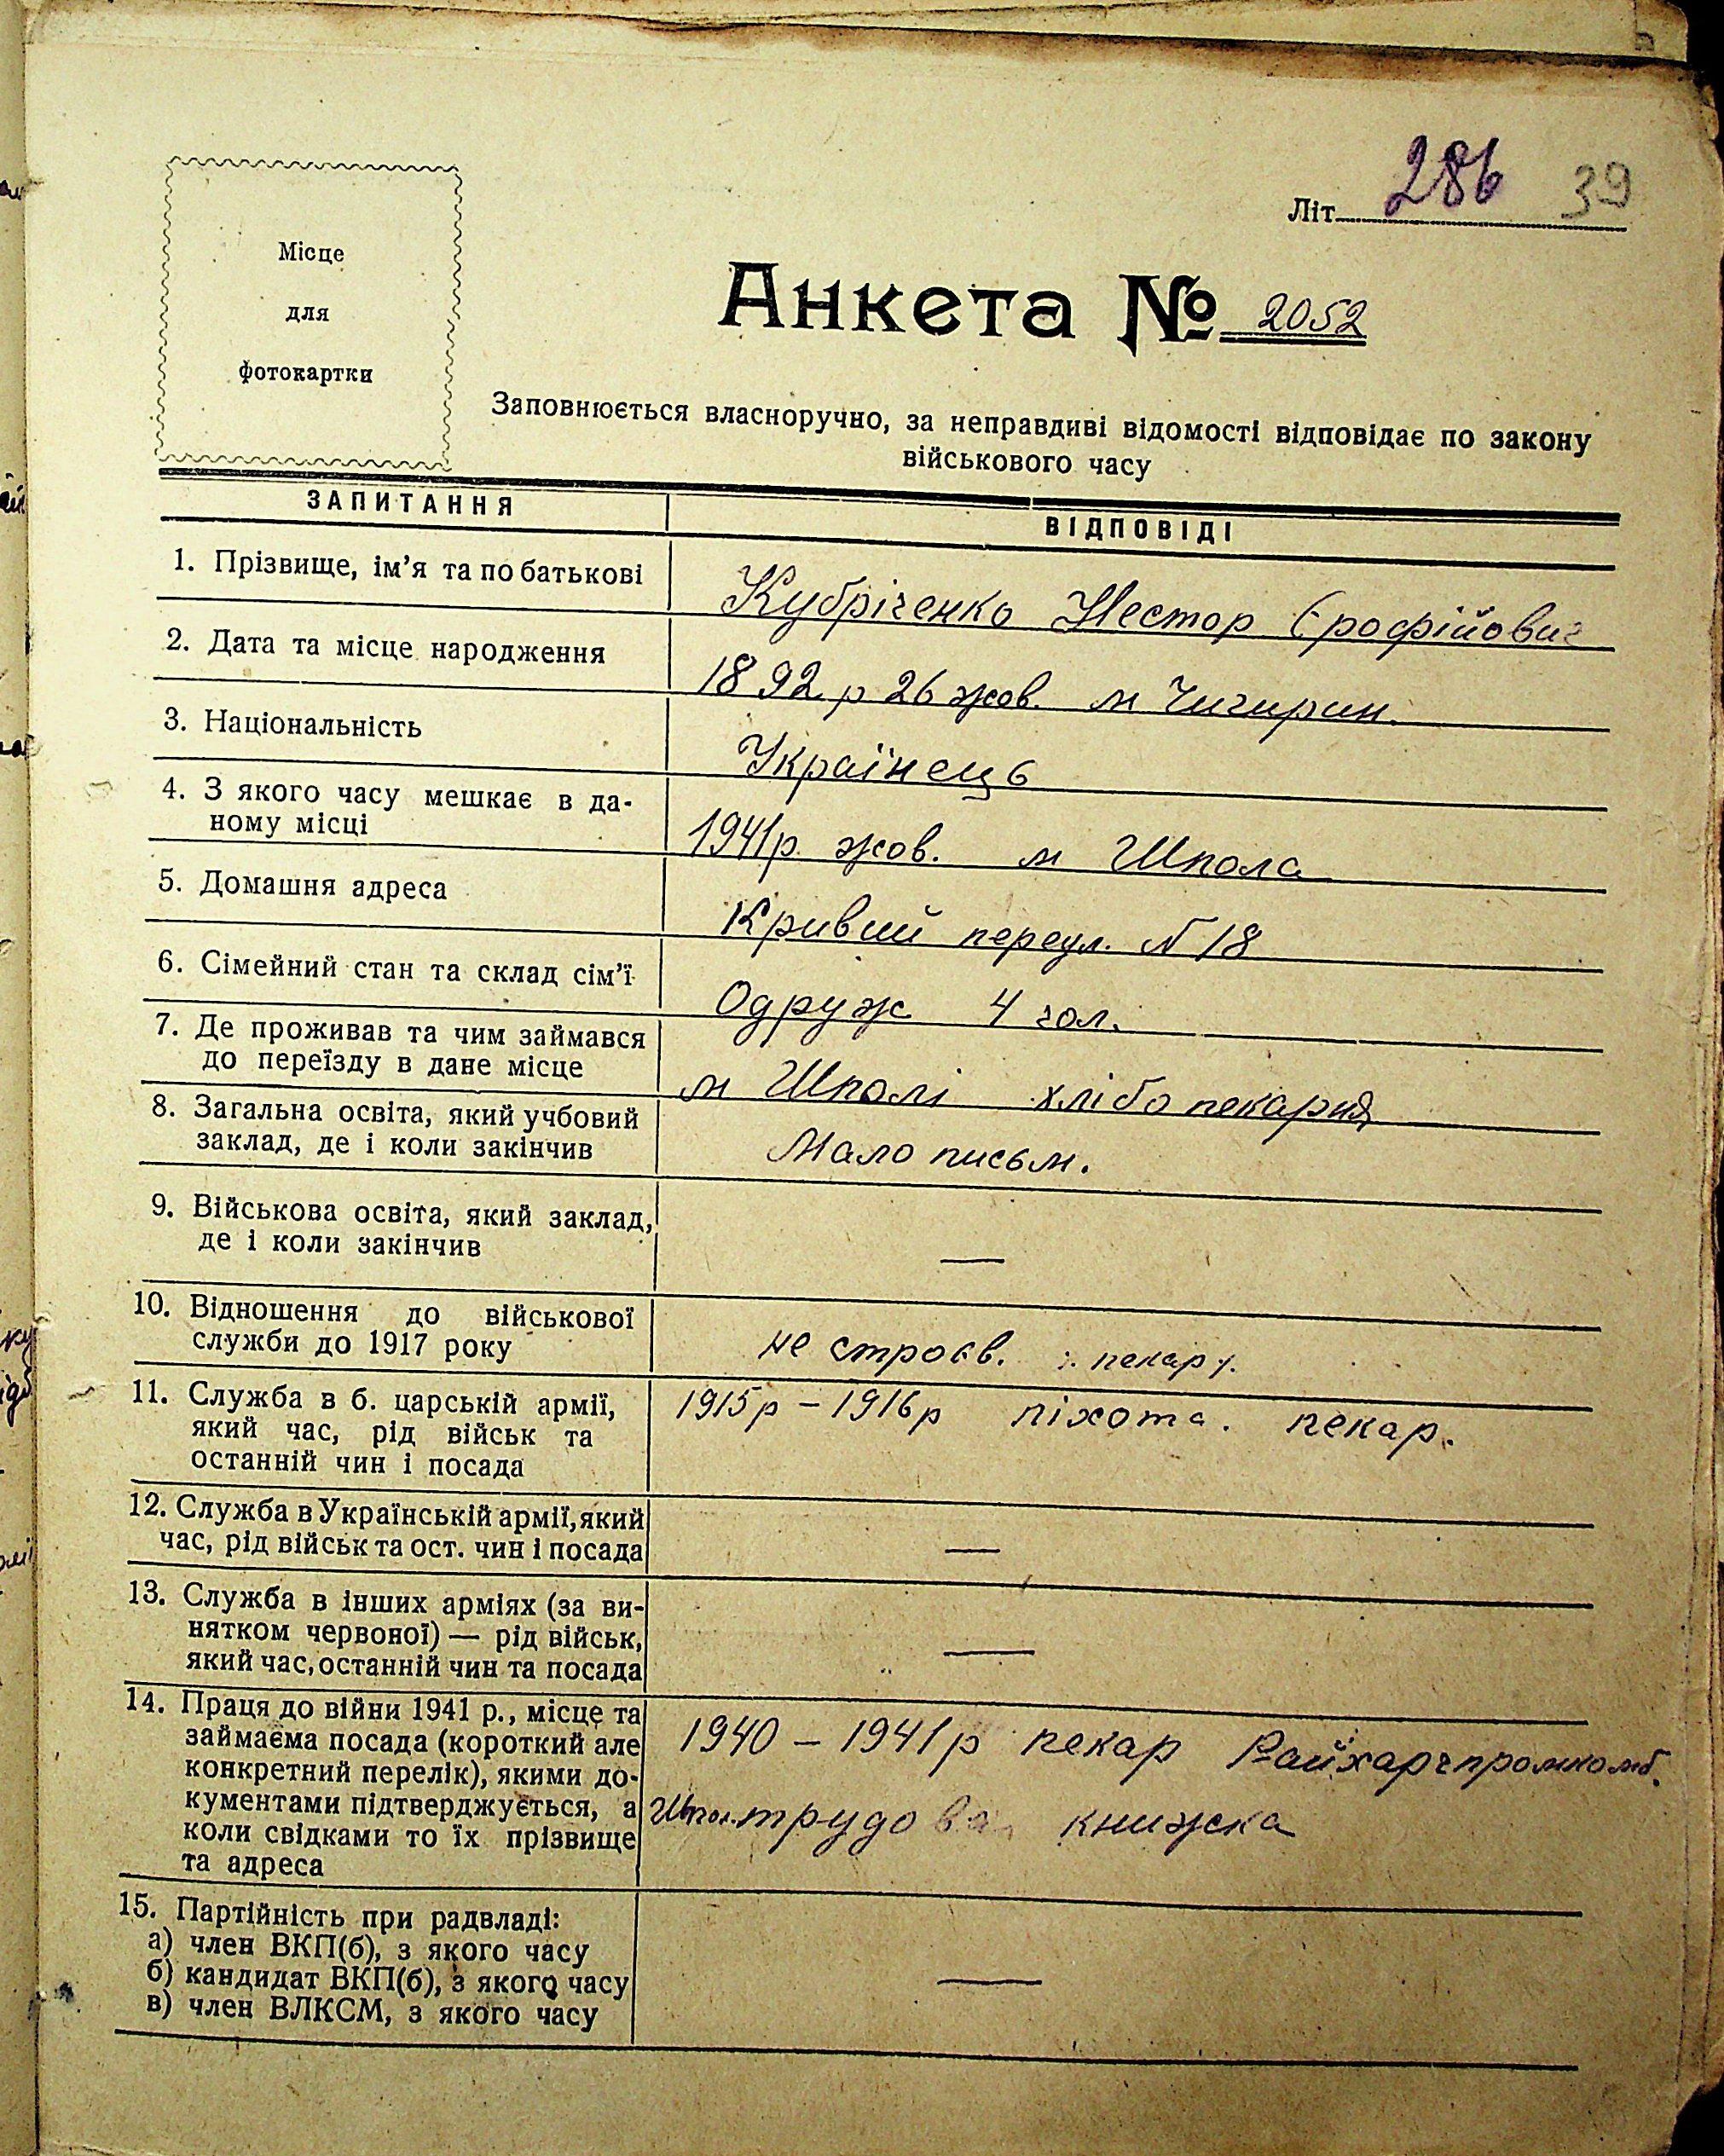 286 39
Літ
Місце
для
фотокартки
Анкета № 2052
Заповнюється власноручно, за неправдиві відомості відповідає по закону
військового часу
ЗАПИТАННЯ
ВІДПОВІДІ
1. Прізвище, ім'я та по батькові
Кубріченко Нестор Єрофійович
2. Дата та місце народження
1892 р 26 жов. м Чигирин.
3. Національність
Українець
4. З якого часу мешкає в да-
ному місці
1941р. жов. м Шпола
5. Домашня адреса
Кривий переул. N 18
6. Сімейний стан та склад сім'ї
Одруж 4 чол.
7. Де проживав та чим займався
до переїзду в дане місце
м Шполі хлібо пекарня
8. Загальна освіта, який учбовий
заклад, де і коли закінчив
Мало письм.
9. Військова освіта, який заклад,
де і коли закінчив
—
10. Відношення до військової
служби до 1917 року
не строєв.
11. Служба в б. царській армії,
який час, рід військ та
останній чин і посада
1915р – 1916р піхота. пекар.
12. Служба в Українській армії, який
час, рід військ та ост. чин і посада
—
13. Служба в інших арміях (за ви-
нятком червоної) — рід військ,
який час, останній чин та посада
—
14. Праця до війни 1941 р., місце та
займаєма посада (короткий але
конкретний перелік), якими до-
кументами підтверджується, а
коли свідками то їх прізвище
та адреса
1940 – 1941р пекар Райхарчпромкомб.
трудова книжка
15. Партійність при радвладі:
а) член ВКП(б), з якого часу
б) кандидат ВКП(б), з якого часу
в) член ВЛКСМ, з якого часу
—